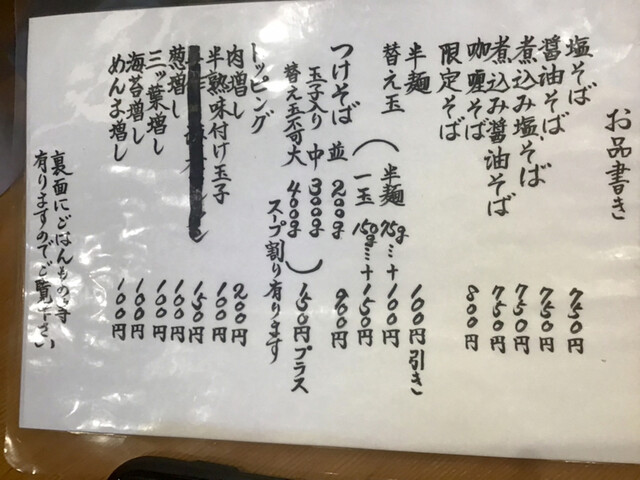 お品書き
塩そば 750円
醤油そば 750円
煮込み塩そば 750円
煮込み醤油そば 750円
咖喱そば 800円
限定そば
半麺 100円引き
替え玉（半麺 75g…+100円
一玉 150g…+150円
つけそば 並 200g 900円
玉子入り 中 300g
替え玉不可 大 400g）150円プラス
スープ割り有ります
トッピング
肉増し 200円
半熟味付け玉子 100円
150円
葱増し 100円
三ッ葉増し 100円
海苔増し 100円
めんま増し 100円
裏面にごはんもの等
有りますのでご覧下さい